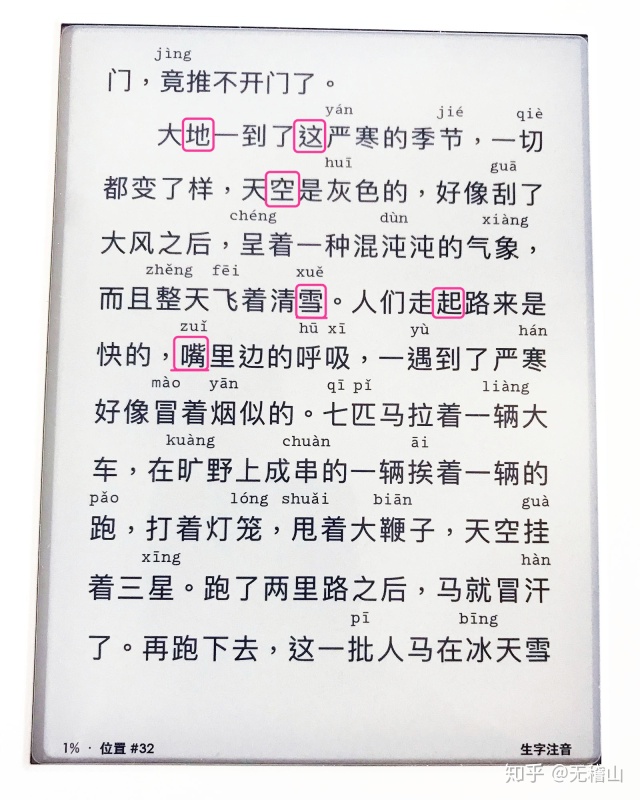 jìng
门，竟推不开门了。
yán jié qiè
大地一到了这严寒的季节，一切
huī guā
都变了样，天空是灰色的，好像刮了
chéng dùn xiàng
大风之后，呈着一种混沌沌的气象，
zhěng fēi xuě
而且整天飞着清雪。人们走起路来是
zuǐ hū xī yù hán
快的，嘴里边的呼吸，一遇到了严寒
mào yān qī pǐ liàng
好像冒着烟似的。七匹马拉着一辆大
kuàng chuàn āi
车，在旷野上成串的一辆挨着一辆的
pǎo lóng shuǎi biān guà
跑，打着灯笼，甩着大鞭子，天空挂
xīng hàn
着三星。跑了两里路之后，马就冒汗
pī bīng
了。再跑下去，这一批人马在冰天雪
1% · 位置 #32 生字注音
知乎 @无稽山